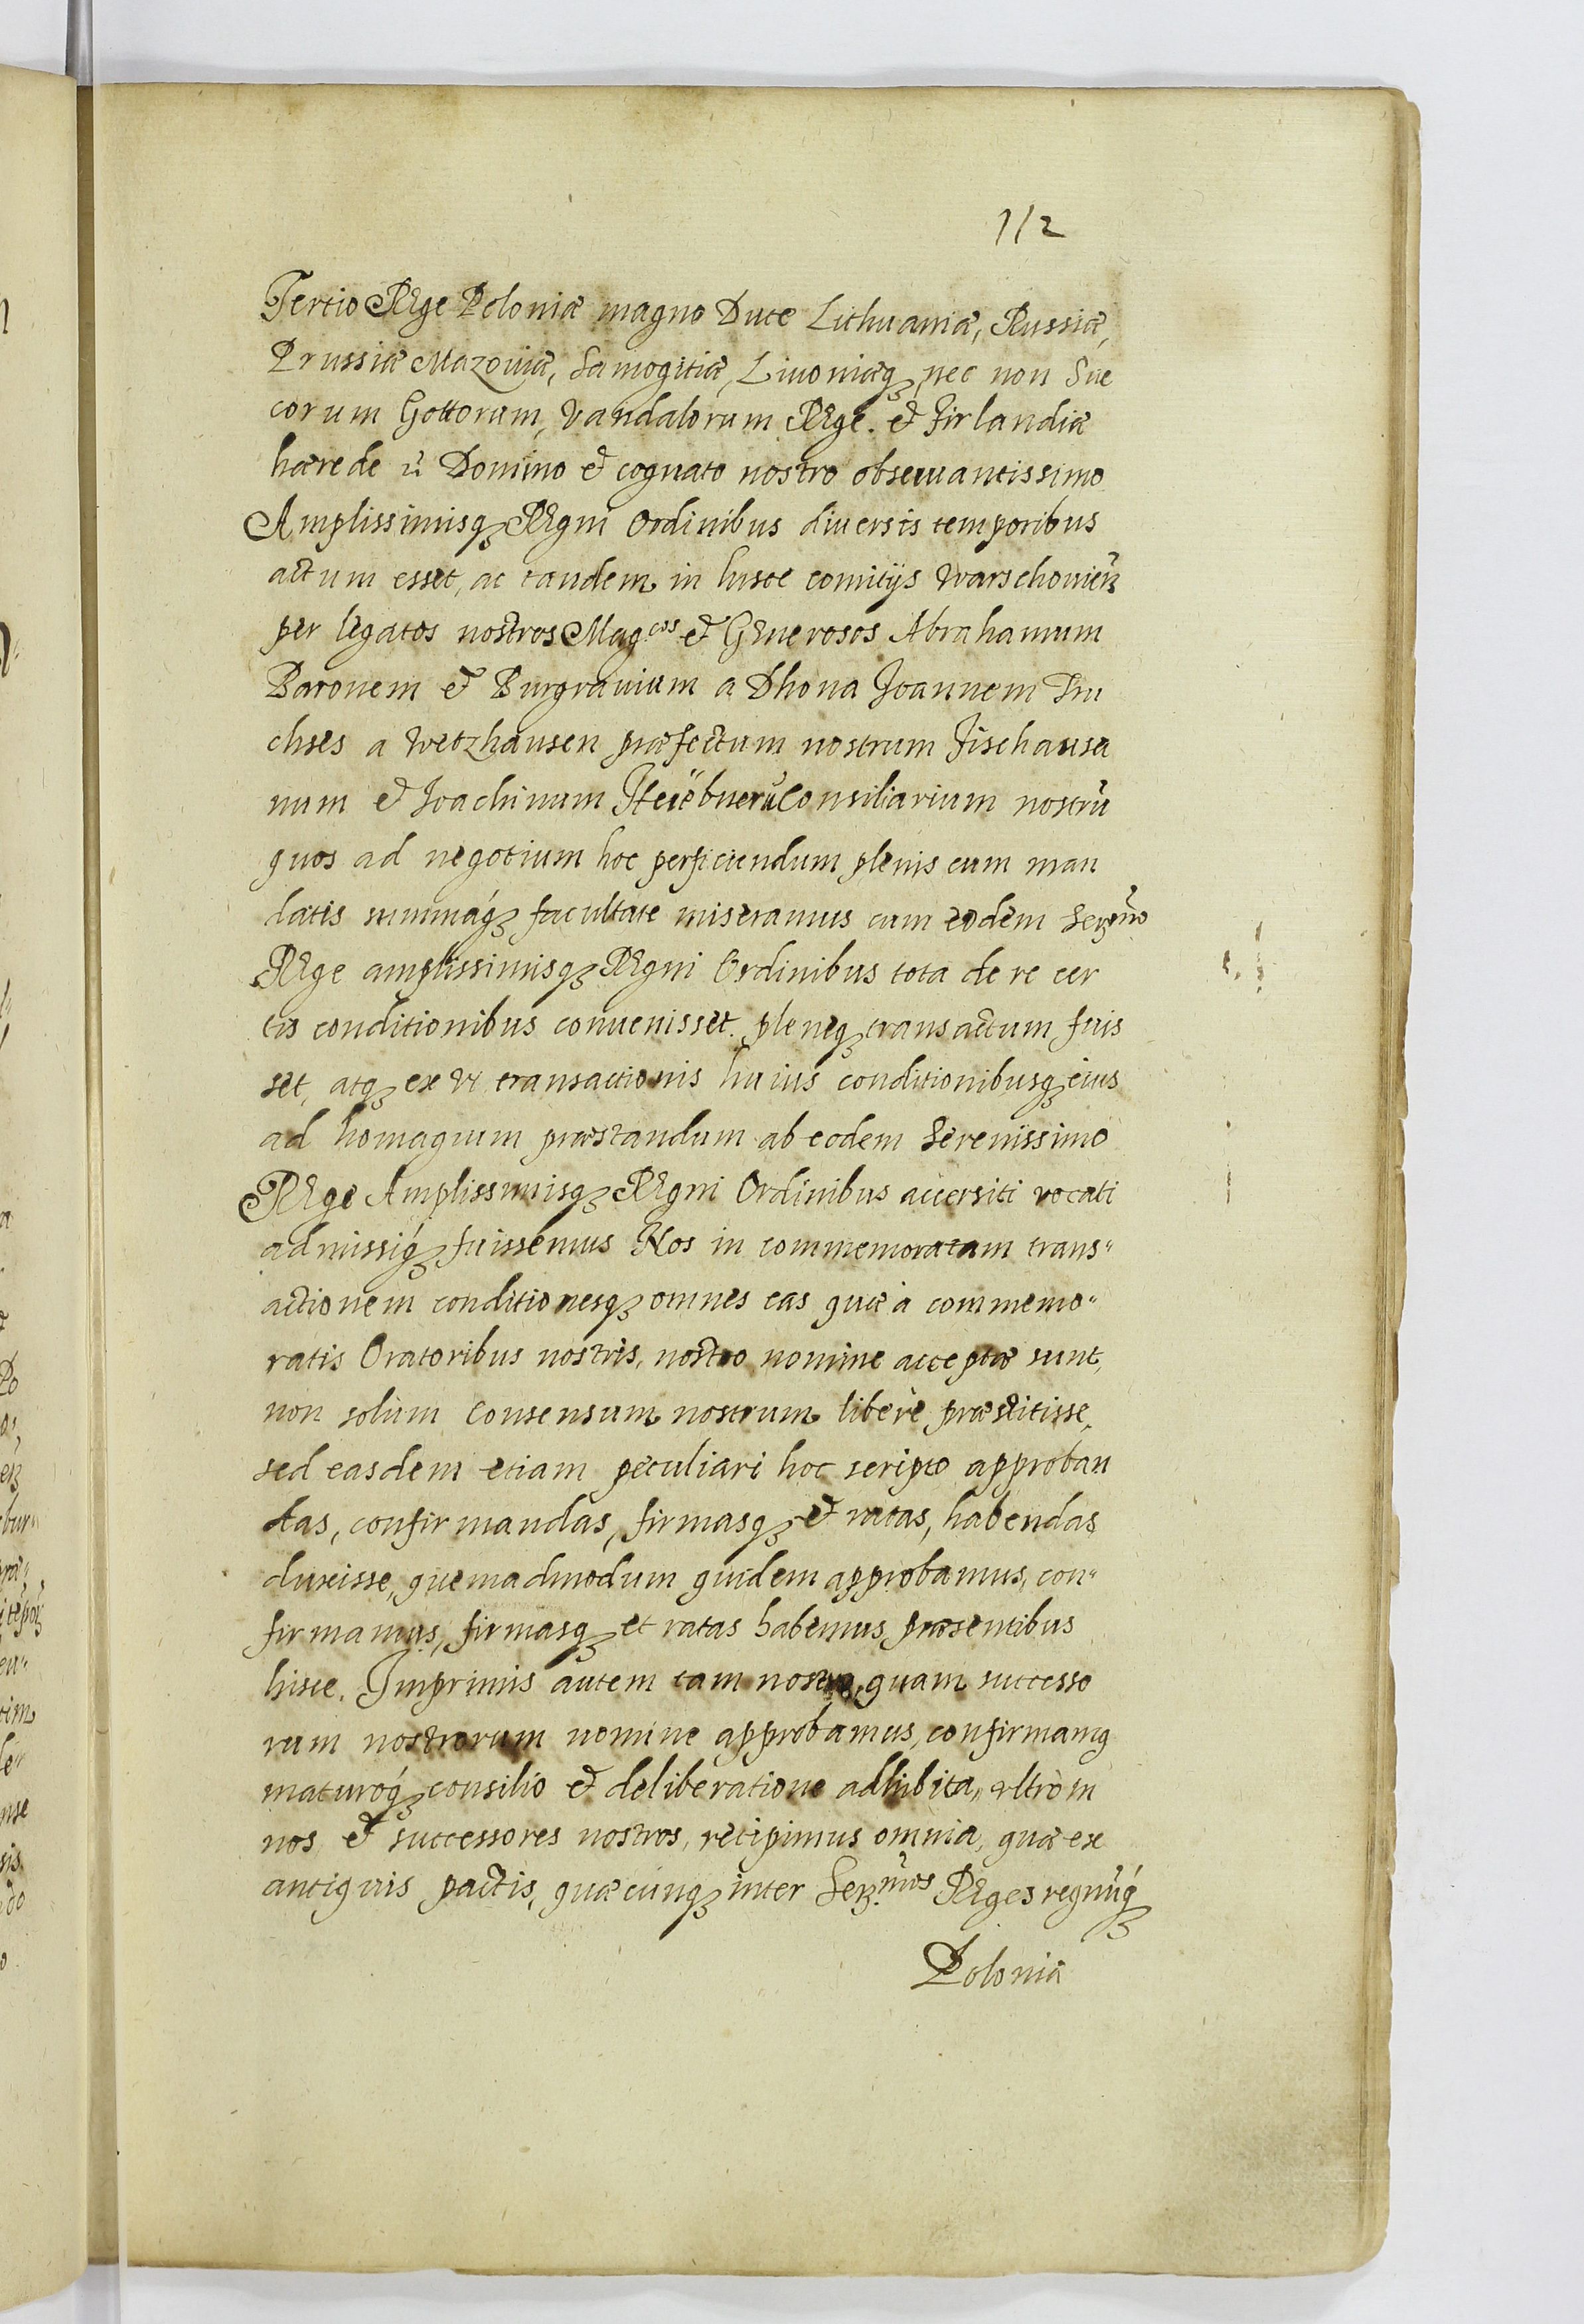 112
Tertio Rege Poloniæ magno Duce Lithuaniæ, Russiæ,
Prussiæ Mazoviæ, Samogitiæ, Liuoniæq́ꝫ, nec non Sue
corum Gottorum, Vandalorum Rege. et Firlandiæ
hærede Domino et cognato nostro obseruantissimo
Amplissimisqꝫ Regni Ordinibus diuersis temporibus
actum esset, ac tandem in husce comitijs Warschouieñ
per legatos nostros Mag.cos et Generosos Abrahamum
Baronem et Burgrauium a Dhona Joannem Tru
chses a Wetzhausen præfectum nostrum Fischausa
num et Joachimum Consiliarium nostrũ
quos ad negotium hoc perficiendum plenis cum man
datis summáqꝫ facultate miseramus cum eodem Serꝫmo
Rege amplissimisqꝫ Regni Ordinibus tota de re cer
tis conditionibus conuenisset. pleneqꝫ transactum fuis
set, atqꝫ ex vi transactionis huius conditionibusqꝫ eius
ad homagium præstandum ab eodem Serenissimo
Rege Amplissimisqꝫ Regni Ordinibus accersiti vocati
admissiq́ꝫ fuissemus Nos in commemoratam trans"
actionem conditionesqꝫ omnes eas quæ à commemo"
ratis Oratoribus nostris, nostro nomine acceptæ sunt,
non solùm Consensum nostrum liberè præstitisse,
sed easdem etiam peculiari hoc scripto approban
das, confirmandas, firmasqꝫ et ratas, habendas
duxisse, quemadmodum quidem approbamus, con"
firmamus, firmasqꝫ et ratas habemus præsentibus
hisce. Imprimis autem tam nostro, quam successo
rum nostrorum nomine approbamus, confirmamq
maturoq́ꝫ consilio et deliberatione adhibita, vltrò in
nos et successores nostros, recipimus omnia, quæ ex
antiquis pactis, quæcunqꝫ inter Serꝫ.mos Reges regnũq́ꝫ
Poloniæ